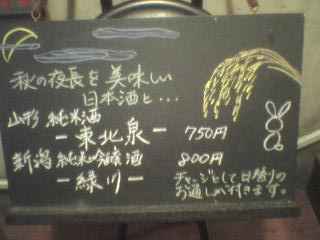 秋の夜長を美味しい
日本酒と…
山形 純米酒
ー東北泉ー 750円
新潟 純米吟醸酒 800円
ー緑川ー
チャージとして日替りの
お通しが付きます。